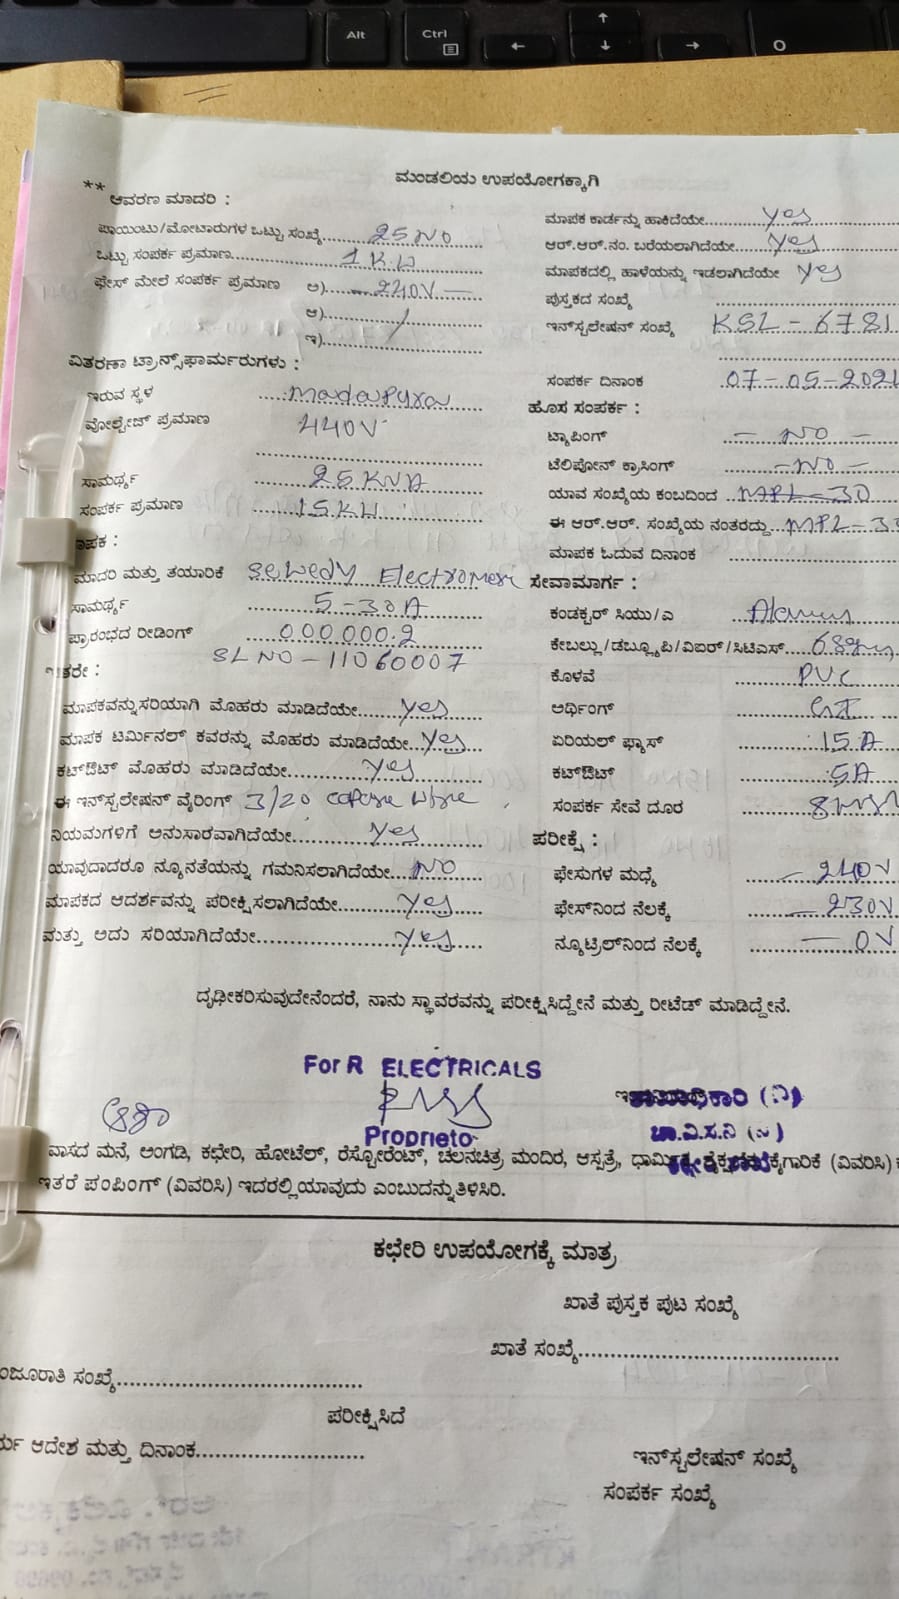 Alt
Ctrl
ಮಂಡಲಿಯ ಉಪಯೋಗಕ್ಕಾಗಿ
** ಆವರಣ ಮಾದರಿ :
ಪಾಯಿಂಟು/ಮೋಟಾರುಗಳ ಒಟ್ಟು ಸಂಖ್ಯೆ 25 NO
ಒಟ್ಟು ಸಂಪರ್ಕ ಪ್ರಮಾಣ 1 KW
ಫೇಸ್ ಮೇಲೆ ಸಂಪರ್ಕ ಪ್ರಮಾಣ ಅ) 240V
ಆ)
ಇ)
ವಿತರಣಾ ಟ್ರಾನ್ಸ್‌ಫಾರ್ಮರುಗಳು :
ಇರುವ ಸ್ಥಳ Madapura
ವೋಲ್ಟೇಜ್ ಪ್ರಮಾಣ 440V
ಸಾಮರ್ಥ್ಯ 25 KVA
ಸಂಪರ್ಕ ಪ್ರಮಾಣ 15 KW
ಮಾದರಿ ಮತ್ತು ತಯಾರಿಕೆ Sewedy Electromere
ಸಾಮರ್ಥ್ಯ 5-30A
ಪ್ರಾರಂಭದ ರೀಡಿಂಗ್ 000000.2
SL NO - 11060007
ಇತರೇ :
ಮಾಪಕವನ್ನುಸರಿಯಾಗಿ ಮೊಹರು ಮಾಡಿದೆಯೇ Yes
ಮಾಪಕ ಟರ್ಮಿನಲ್ ಕವರನ್ನು ಮೊಹರು ಮಾಡಿದೆಯೇ Yes
ಕಟ್‌ಔಟ್ ಮೊಹರು ಮಾಡಿದೆಯೇ Yes
ಈ ಇನ್‌ಸ್ಟಲೇಷನ್ ವೈರಿಂಗ್ 3/20
ನಿಯಮಗಳಿಗೆ ಅನುಸಾರವಾಗಿದೆಯೇ Yes
ಯಾವುದಾದರೂ ನ್ಯೂನತೆಯನ್ನು ಗಮನಿಸಲಾಗಿದೆಯೇ NO
ಮಾಪಕದ ಆದರ್ಶವನ್ನು ಪರೀಕ್ಷಿಸಲಾಗಿದೆಯೇ Yes
ಮತ್ತು ಅದು ಸರಿಯಾಗಿದೆಯೇ Yes
ಮಾಪಕ ಕಾರ್ಡನ್ನು ಹಾಕಿದೆಯೇ Yes
ಆರ್.ಆರ್.ನಂ. ಬರೆಯಲಾಗಿದೆಯೇ Yes
ಮಾಪಕದಲ್ಲಿ ಹಾಳೆಯನ್ನು ಇಡಲಾಗಿದೆಯೇ Yes
ಪುಸ್ತಕದ ಸಂಖ್ಯೆ
ಇನ್‌ಸ್ಟಲೇಷನ್ ಸಂಖ್ಯೆ KSL - 6781
ಸಂಪರ್ಕ ದಿನಾಂಕ 07-05-2021
ಹೊಸ ಸಂಪರ್ಕ :
ಟ್ಯಾಪಿಂಗ್ - NO -
ಟೆಲಿಪೋನ್ ಕ್ರಾಸಿಂಗ್ - NO -
ಯಾವ ಸಂಖ್ಯೆಯ ಕಂಬದಿಂದ MPL-30
ಈ ಆರ್.ಆರ್. ಸಂಖ್ಯೆಯ ನಂತರದ್ದು
ಮಾಪಕ ಓದುವ ದಿನಾಂಕ
ಸೇವಾಮಾರ್ಗ :
ಕಂಡಕ್ಟರ್ ಸಿಯು/ಎ
ಕೇಬಲ್ಲು/ಡಬ್ಲ್ಯೂಪಿ/ವಿಐರ್/ಸಿಟಿಎಸ್
ಕೊಳವೆ PVC
ಅರ್ಥಿಂಗ್ GI
ಏರಿಯಲ್ ಫ್ಯೂಸ್ 15A
ಕಟ್‌ಔಟ್ 5A
ಸಂಪರ್ಕ ಸೇವೆ ದೂರ
ಪರೀಕ್ಷೆ :
ಫೇಸುಗಳ ಮಧ್ಯೆ - 240V
ಫೇಸ್‌ನಿಂದ ನೆಲಕ್ಕೆ - 230V
ನ್ಯೂಟ್ರಲ್‌ನಿಂದ ನೆಲಕ್ಕೆ - 0V
ದೃಢೀಕರಿಸುವುದೇನೆಂದರೆ, ನಾನು ಸ್ಥಾವರವನ್ನು ಪರೀಕ್ಷಿಸಿದ್ದೇನೆ ಮತ್ತು ರೀಟೆಡ್ ಮಾಡಿದ್ದೇನೆ.
For R ELECTRICALS
Proprieto
ವಾಸದ ಮನೆ, ಅಂಗಡಿ, ಕಛೇರಿ, ಹೋಟೆಲ್, ರೆಸ್ಟೋರೆಂಟ್, ಚಲನಚಿತ್ರ ಮಂದಿರ, ಆಸ್ಪತ್ರೆ, (ವಿವರಿಸಿ)
ಇತರೆ ಪಂಪಿಂಗ್ (ವಿವರಿಸಿ) ಇದರಲ್ಲಿಯಾವುದು ಎಂಬುದನ್ನುತಿಳಿಸಿರಿ.
ಕಛೇರಿ ಉಪಯೋಗಕ್ಕೆ ಮಾತ್ರ
ಖಾತೆ ಪುಸ್ತಕ ಪುಟ ಸಂಖ್ಯೆ
ಖಾತೆ ಸಂಖ್ಯೆ
ಂಜೂರಾತಿ ಸಂಖ್ಯೆ
ಪರೀಕ್ಷಿಸಿದೆ
ಆದೇಶ ಮತ್ತು ದಿನಾಂಕ
ಇನ್‌ಸ್ಟಲೇಷನ್ ಸಂಖ್ಯೆ
ಸಂಪರ್ಕ ಸಂಖ್ಯೆ